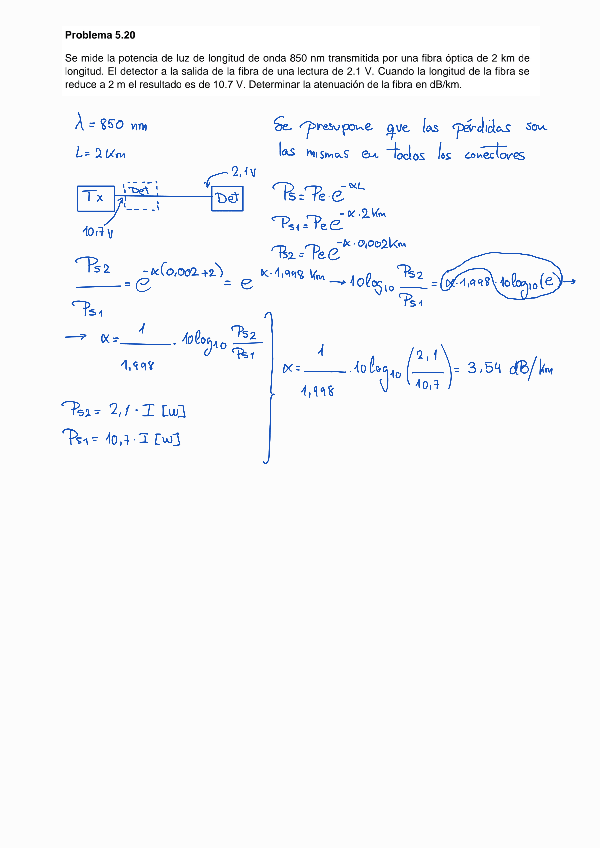 Problema 5.20
Se mide la potencia de luz de longitud de onda 850 nm transmitida por una fibra óptica de 2 km de
longitud. El detector a la salida de la fibra de una lectura de 2.1 V. Cuando la longitud de la fibra se
reduce a 2 m el resultado es de 10.7 V. Determinar la atenuación de la fibra en dB/km.
λ = 850 nm
Se presupone que las pérdidas son
L = 2 Km
las mismas en todos los conectores
2,1V
Tx Det Det
10,7V
Ps = Pe · e^{-αL}
Ps1 = Pe e^{-α·2Km}
Ps2 = Pe e^{-α·0,002Km}
Ps2/Ps1 = e^{-α(0,002+2)} = e^{α·1,998 Km} → 10log10 Ps2/Ps1 = α·1,998·10log10(e) →
→ α = 1/1,998 · 10log10 Ps2/Ps1
α = 1/1,998 · 10log10(2,1/10,7) = 3,54 dB/Km
Ps2 = 2,1 · I [w]
Ps1 = 10,7 · I [w]